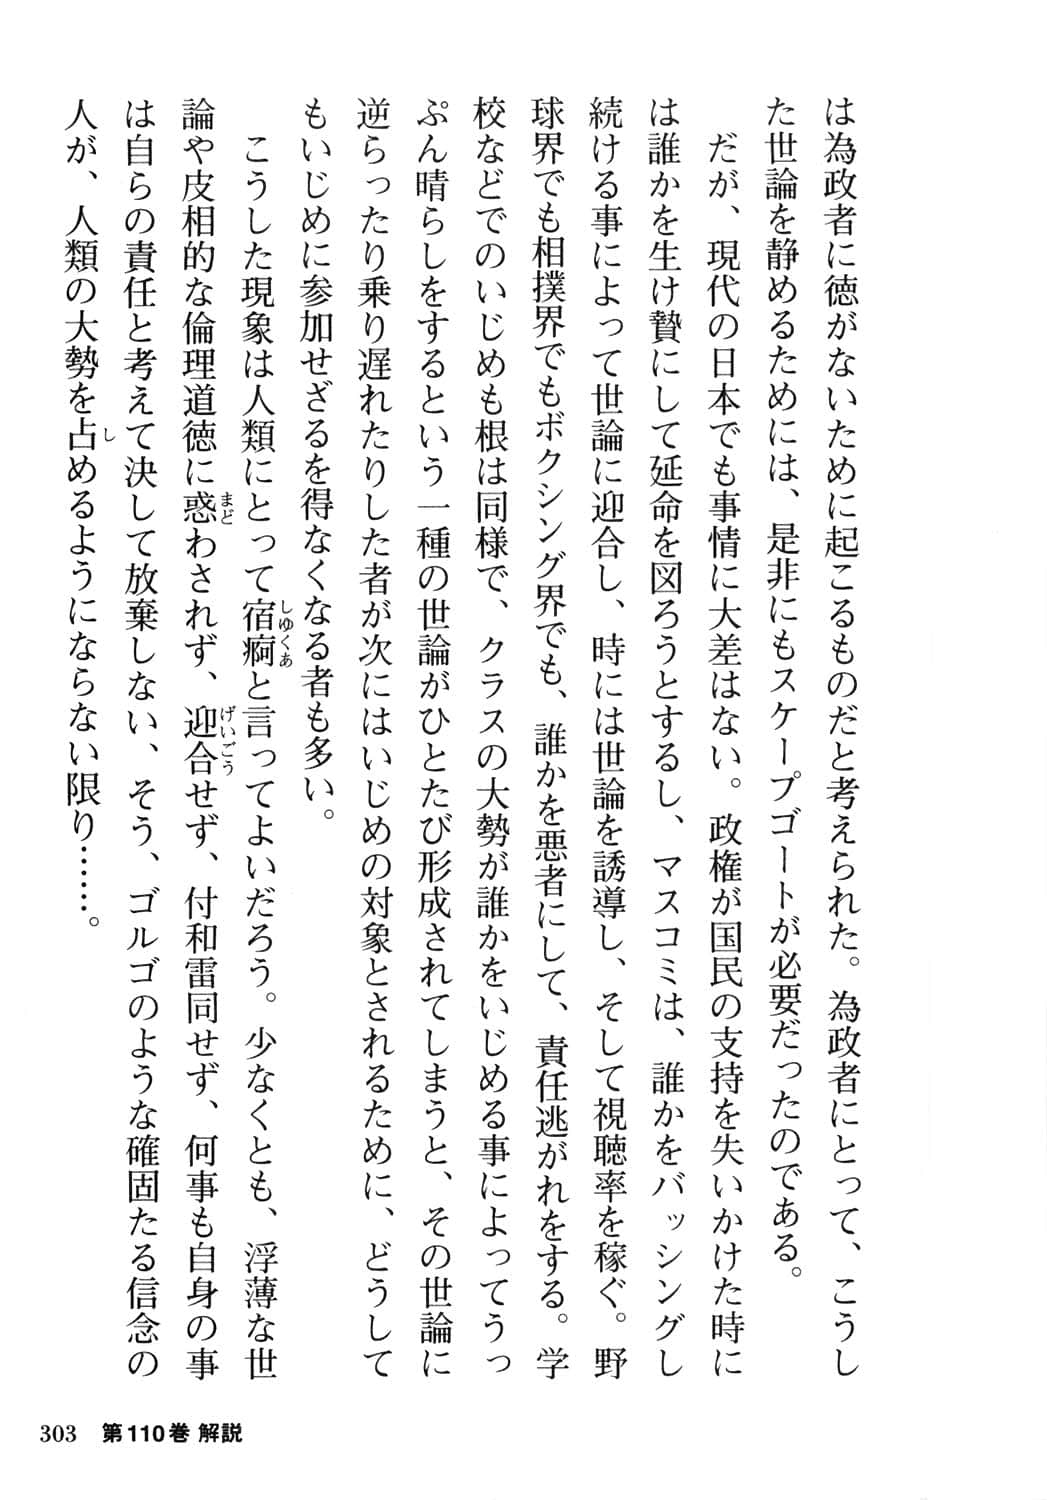 は為政者に徳がないために起こるものだと考えられた。為政者にとって、こうし
た世論を静めるためには、是非にもスケープゴートが必要だったのである。
だが、現代の日本でも事情に大差はない。政権が国民の支持を失いかけた時に
は誰かを生け贄にして延命を図ろうとするし、マスコミは、誰かをバッシングし
続ける事によって世論に迎合し、時には世論を誘導し、そして視聴率を稼ぐ。野
球界でも相撲界でもボクシング界でも、誰かを悪者にして、責任逃がれをする。学
校などでのいじめも根は同様で、クラスの大勢が誰かをいじめる事によってうっ
ぷん晴らしをするという一種の世論がひとたび形成されてしまうと、その世論に
逆らったり乗り遅れたりした者が次にはいじめの対象とされるために、どうして
もいじめに参加せざるを得なくなる者も多い。
こうした現象は人類にとって宿痾しゆくあと言ってよいだろう。少なくとも、浮薄な世
論や皮相的な倫理道徳に惑まどわされず、迎合げいごうせず、付和雷同せず、何事も自身の事
は自らの責任と考えて決して放棄しない、そう、ゴルゴのような確固たる信念の
人が、人類の大勢を占しめるようにならない限り……。
303 第110巻 解説